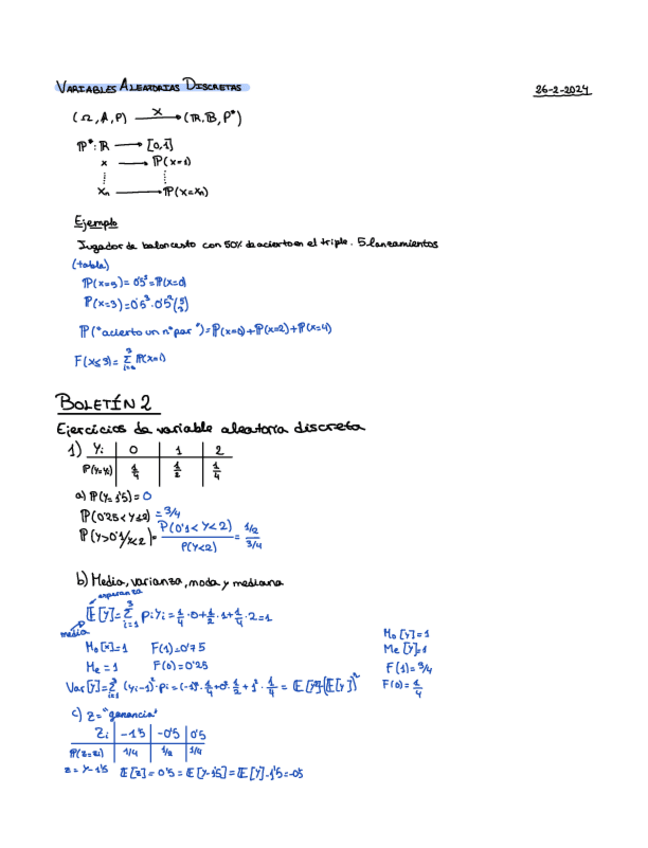 VARIABLES ALEATORIAS DISCRETAS
26-2-2024
(Ω, A, P) —X→ (R, B, P*)
P*: R → [0,1]
x → P(x=1)
⋮ ⋮
xn → P(x=xn)
Ejemplo
Jugador de baloncesto con 50% de acierto en el triple. 5 lanzamientos
(table)
P(x=5)= 0'5⁵ = P(x=0)
P(x=3)=0'5³·0'5²(5 3)
P("acierto un nº par")=P(x=0)+P(x=2)+P(x=4)
F(x≤3)= Σ³ᵢ₌₀ P(x=i)
BOLETÍN 2
Ejercicios de variable aleatoria discreta
1) Yi | 0 | 1 | 2
P(Y=Yi) | 1/4 | 1/2 | 1/4
a) P(Y=1'5)=0
P(0'25<Y≤2) = 3/4
P(Y>0'1/Y<2)= P(0'1<Y<2)/P(Y<2) = (1/2)/(3/4)
b) Media, varianza, moda y mediana
esperanza
E[Y]= Σ³ᵢ₌₁ PiYi = 1/4·0+1/2·1+1/4·2=1
media
Mo[X]=1 F(1)=0'75
Me=1 F(0)=0'25
Mo[Y]=1
Me[Y]=1
F(1)=3/4
F(0)=1/4
Var[Y]= Σ³ᵢ₌₁ (Yi-1)²·Pi = (-1)²·1/4+0²·1/2+1²·1/4 = E[Y²]-(E[Y])²
c) Z="ganancia"
Zi | -1'5 | -0'5 | 0'5
P(Z=Zi) | 1/4 | 1/2 | 1/4
Z=Y-1'5 E[Z]=0'5=E[Y-1'5]=E[Y]-1'5=-0'5